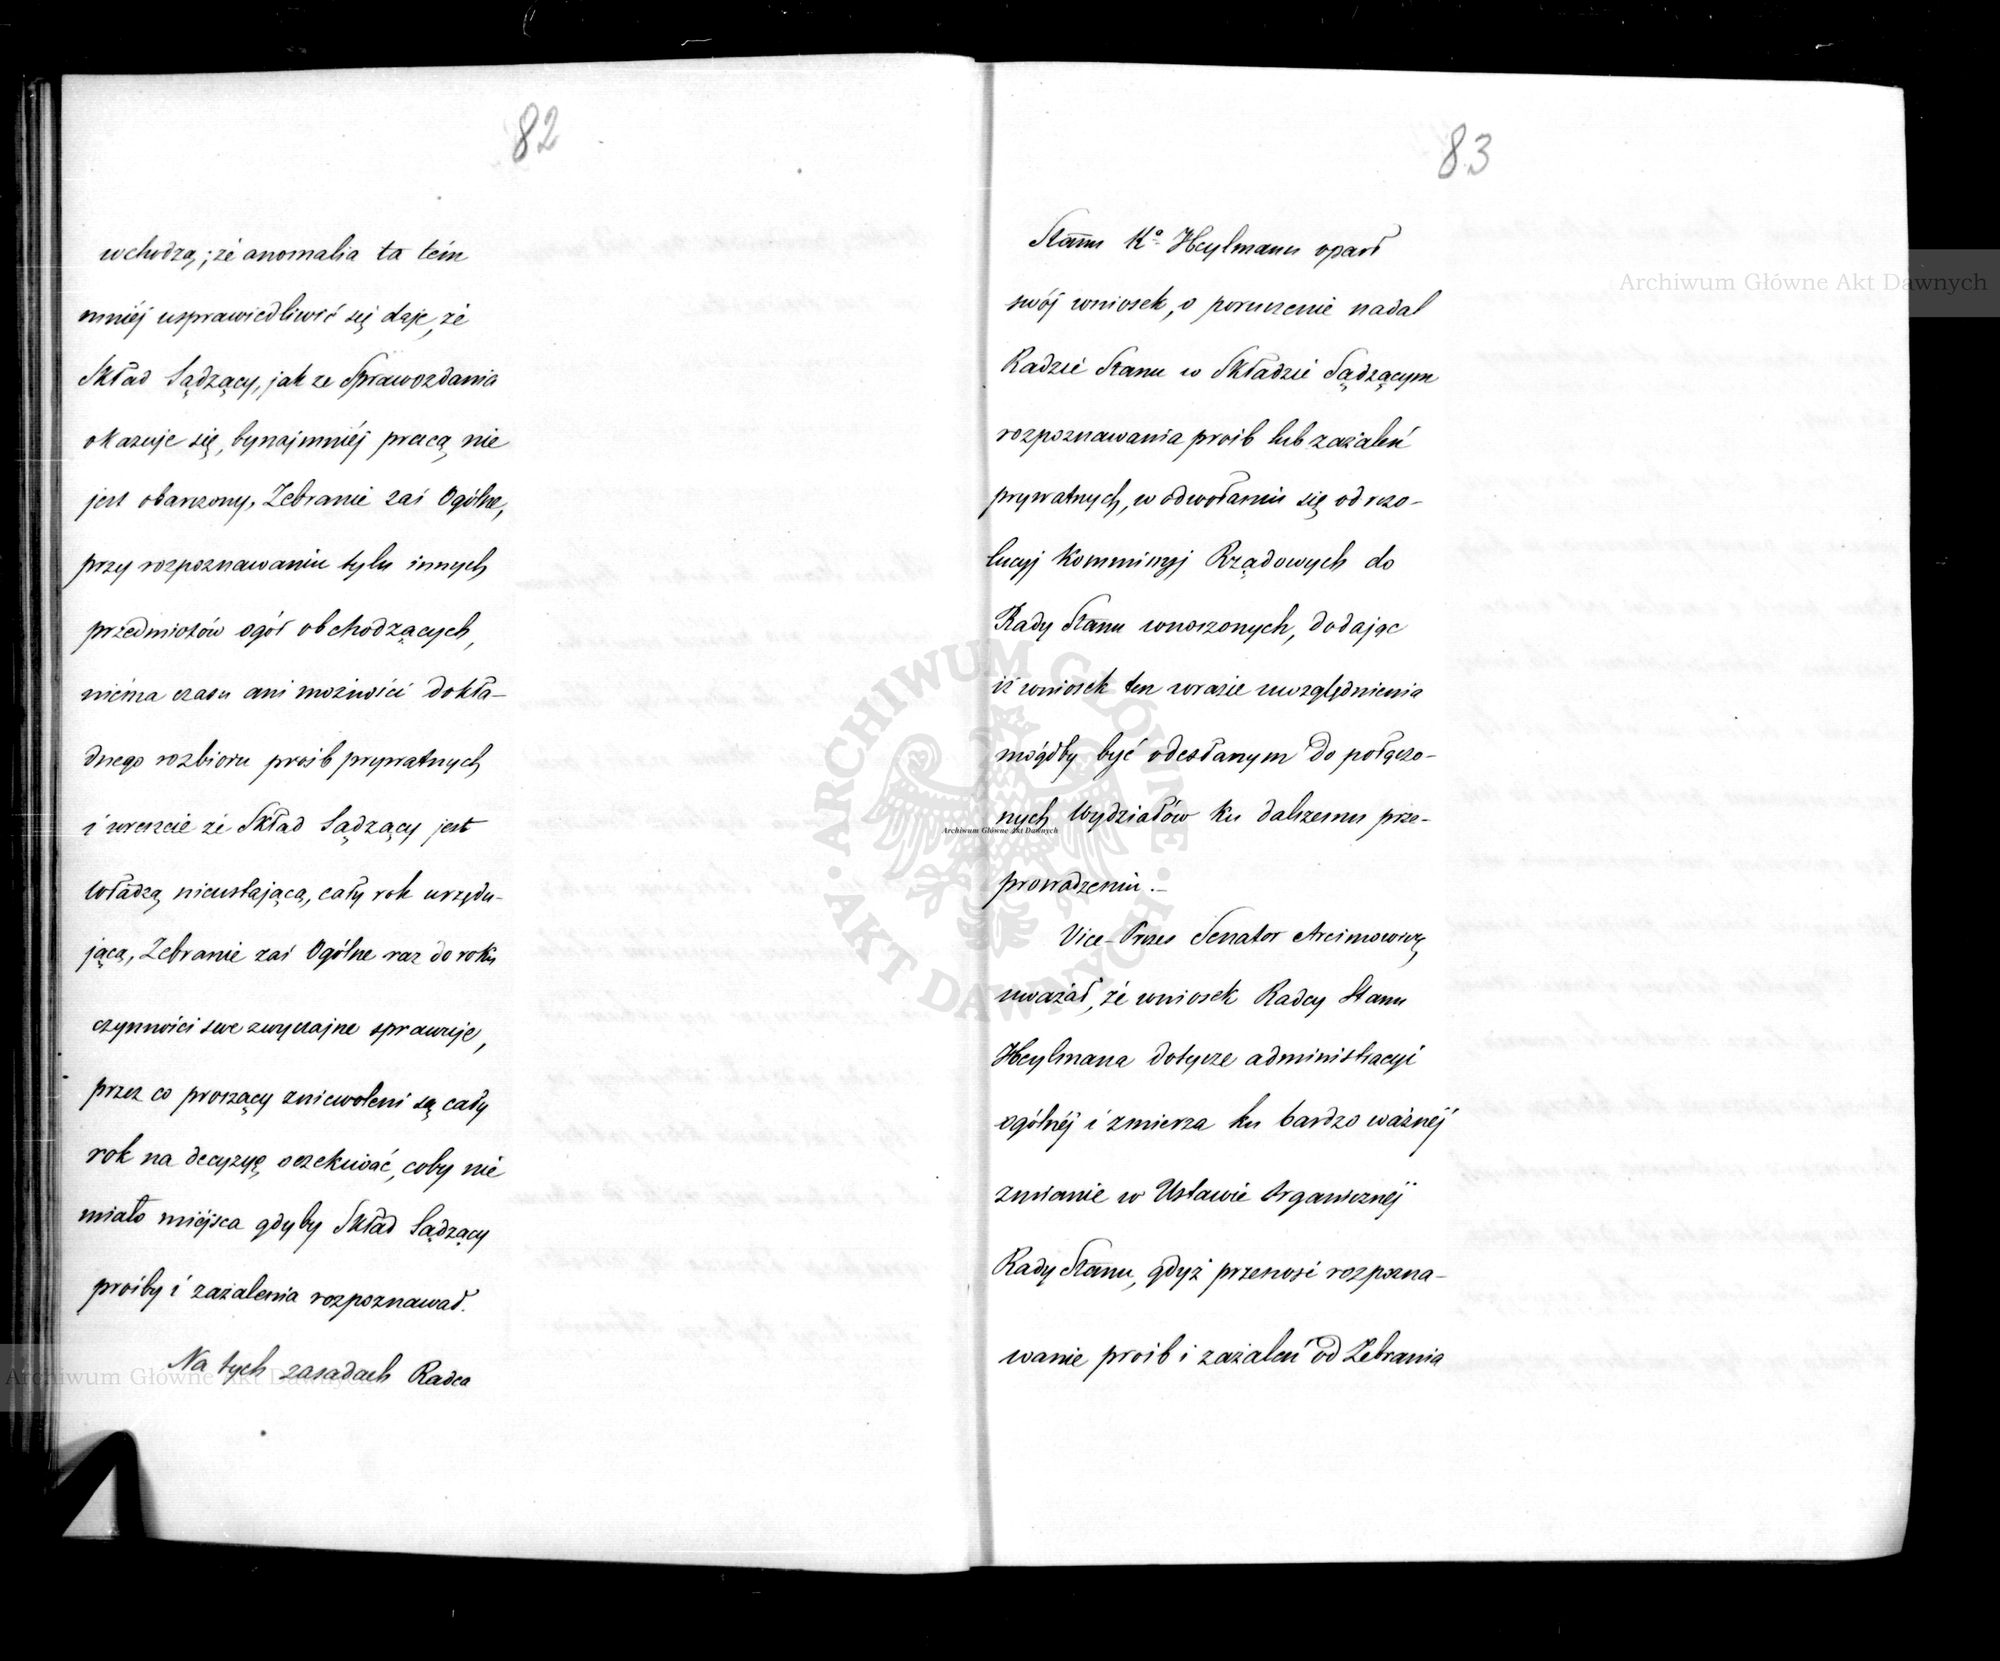 82
wchodzą; że anomalia ta tém
mniéj usprawiedliwić się daje, że
Skład Sądzący, jak ze Sprawozdania
okazuje się, bynajmniéj pracą nie
jest obarczony, Zebranie zaś Ogólne,
przy rozpoznawaniu tylu innych
przedmiotów ogół obchodzących,
niéma czasu ani możności dokła-
dnego rozbioru prośb prywatnych
i wreszcie że Skład Sądzący jest
Władzą nieustającą, cały rok urzędu-
jącą, Zebranie zaś Ogólne raz do roku
czynności swe zwyczajne sprawuje,
przez co proszący zniewoleni są cały
rok na decyzyę oczekiwać, coby nie
miało miéjsca gdyby Skład Sądzący
prośby i zażalenia rozpoznawał.
Na tych zasadach Radca
83
Stanu Heylmann oparł
swój wniosek, o poruczenie nadal
Radzie Stanu w Składzie Sądzącym
rozpoznawania prośb lub zażaleń
prywatnych, w odwołaniu się od rezo-
lucyj Kommissyj Rządowych do
Rady Stanu wnoszonych, dodając
iż wniosek ten w razie uwzględnienia
mógłby być odesłanym do połączo-
nych Wydziałów ku dalszemu prze-
prowadzeniu.–
Vice-Prezes Senator Arcimowicz,
uważał, że wniosek Radcy Stanu
Heylmana dotycze administracyi
ogólnéj i zmierza ku bardzo ważnéj
zmianie w Ustawie Organicznéj
Rady Stanu, gdyż przenosi rozpozna-
wanie prośb i zażaleń od Zebrania
Archiwum Główne Akt Dawnych
Archiwum Główne Akt Dawnych
Archiwum Główne Akt Dawnych
ARCHIWUM GŁÓWNE AKT DAWNYCH